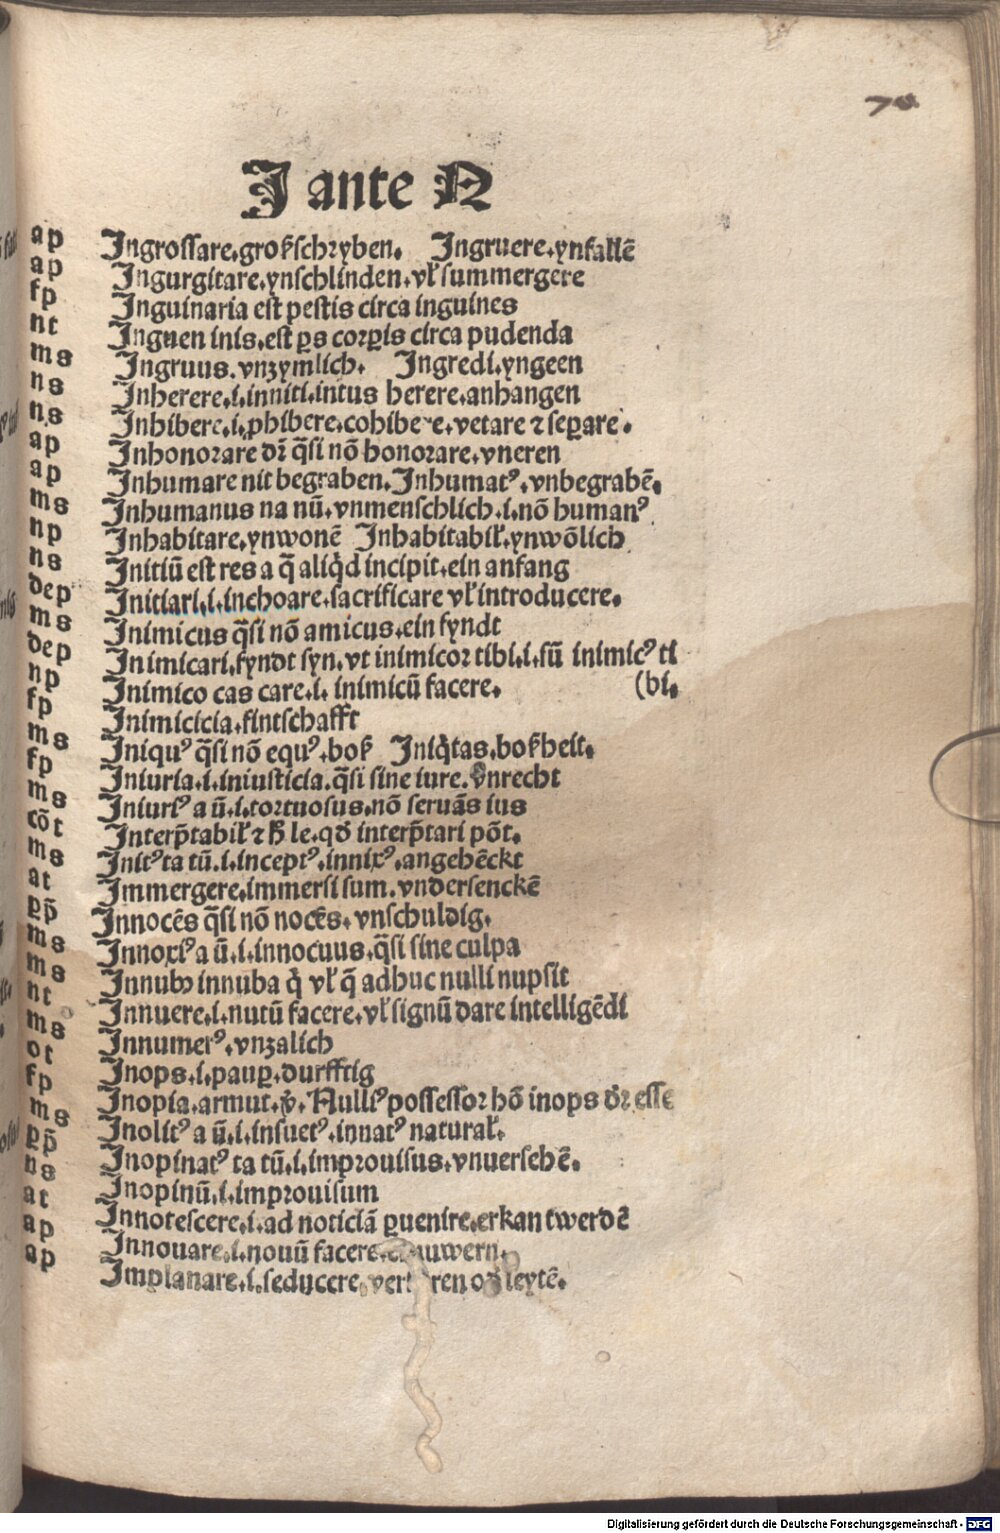 70
J ante N
ap Ingrossare.groſzschryben. Ingruere.ynfallē
ap Ingurgitare.ynschlinden.vł summergere
fp Inguinaria est pestis circa inguines
nt Inguen inis.est ꝑs corꝑis circa pudenda
ms Ingruus.vnzymlich. Ingredi.yngeen
ns Inherere.i.inniti.intus herere.anhangen
ns Inhibere.i.ꝓhibere.cohibere.vetare ⁊ seꝑare.
ap Inhonorare dr̄ q̄si nō honorare.vneren
ap Inhumare nit begraben.Inhumatꝰ.vnbegrabē.
ms Inhumanus na nū.vnmenschlich.i.nō humanꝰ
np Inhabitare.ynwonē Inhabitabił.ynwōlich
ns Initiū est res a q̄ aliq̇d incipit.ein anfang
dep Initiari.i.inchoare.sacrificare vł introducere.
ms Inimicus q̄si nō amicus.ein fyndt
dep Inimicari.fyndt syn.vt inimicor tibi.i.sū inimicꝰ ti
np Inimico cas care.i. inimicū facere. (bi.
fp Inimicicia.fintschafft
ms Iniquꝰ q̄si nō equꝰ.boſz Iniq̇tas.boſzheit.
fp Iniuria.i.iniusticia.q̄si sine iure.vnrecht
ms Iniuriꝰ a ū.i.tortuosus.nō seruās ius
cōt Interp̄tabił ⁊ h̄ le.qđ interp̄tari pōt.
ms Initꝰ ta tū.i.inceptꝰ.innixꝰ.angehēckt
at Immergere.immersi sum.vndersenckē
ꝑp̄ Innocēs q̄si nō nocēs.vnschuldig.
ms Innoxiꝰ a ū.i.innocuus.q̄si sine culpa
ms Innubꝰ innuba q̇ vł q̄ adhuc nulli nupsit
nt Innuere.i.nutū facere.vł signū dare intelligēdi
ms Innumerꝰ.vnzalich
ot Inops.i.pauꝑ.durfftig
fp Inopia.armut.v̇.Nulliꝰ possessor hō inops dr̄ esse
ms Inolitꝰ a ū.i.insuetꝰ.innatꝰ naturał.
ꝑp̄ Inopinatꝰ ta tū.i.improuisus.vnuersehē.
ns Inopinū.i.improuisum
at Innotescere.i.ad noticiā ꝑuenire.erkant werdē
ap Innouare.i.nouū facere.
ap Implanare.i.seducere. leytē.
Digitalisierung gefördert durch die Deutsche Forschungsgemeinschaft - DFG